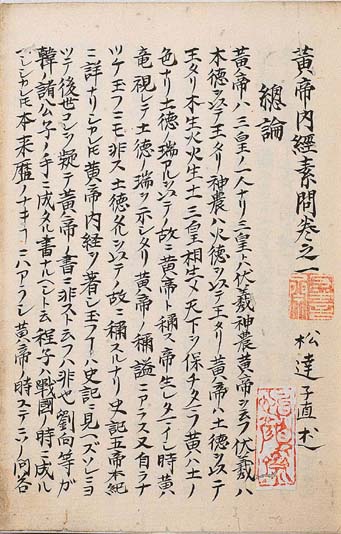 黄帝内經素問卷之一
松達子直述
總論
黄帝ハ三皇ノ一人ナリ三皇トハ伏羲神農黄帝ヲ云フ伏羲ハ
木德ヲ以テ王タリ神農ハ火德ヲ以テ王タリ黄帝ハ土德ヲ以テ
王タリ木生火火生土三皇相生メ天下ヲ保チタモフ黄ハ土ノ
色ナリ土德ノ瑞アルヲ以テノ故ニ黄帝ト稱ス帝生レタマイシ時黄
竜視レテ土德ノ瑞ヲ示シタリ黄帝ノ稱謚ニアラス又自ラナ
ツケ玉フニモ非ス土德タルヲ以テノ故ニ稱スルナリ史記五帝本紀
ニ詳ナリシカレ𪜈黄帝内經ヲ著シ玉フ史記ニ見ヘズソレヨ
ツテ後世コレヲ疑テ黄帝ノ書ニ非スト云フハ非也劉向等カ
韓ノ諸公子ノ手ニ成タル書ナルヘシト云程子ハ戰國ノ時ニ成ル
シカレ𪜈本来歴ノナキニハアラシ黄帝ノ時ステニ問答